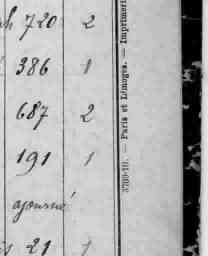 720 2
386 1
687 2
191 1
ajourné
21 1
3700-10. — Paris et Limoges. — Imprimeri